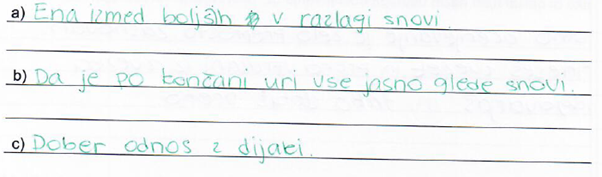 a) Ena izmed boljših v razlagi snovi.
b) Da je po končani uri vse jasno glede snovi.
c) Dober odnos z dijaki.